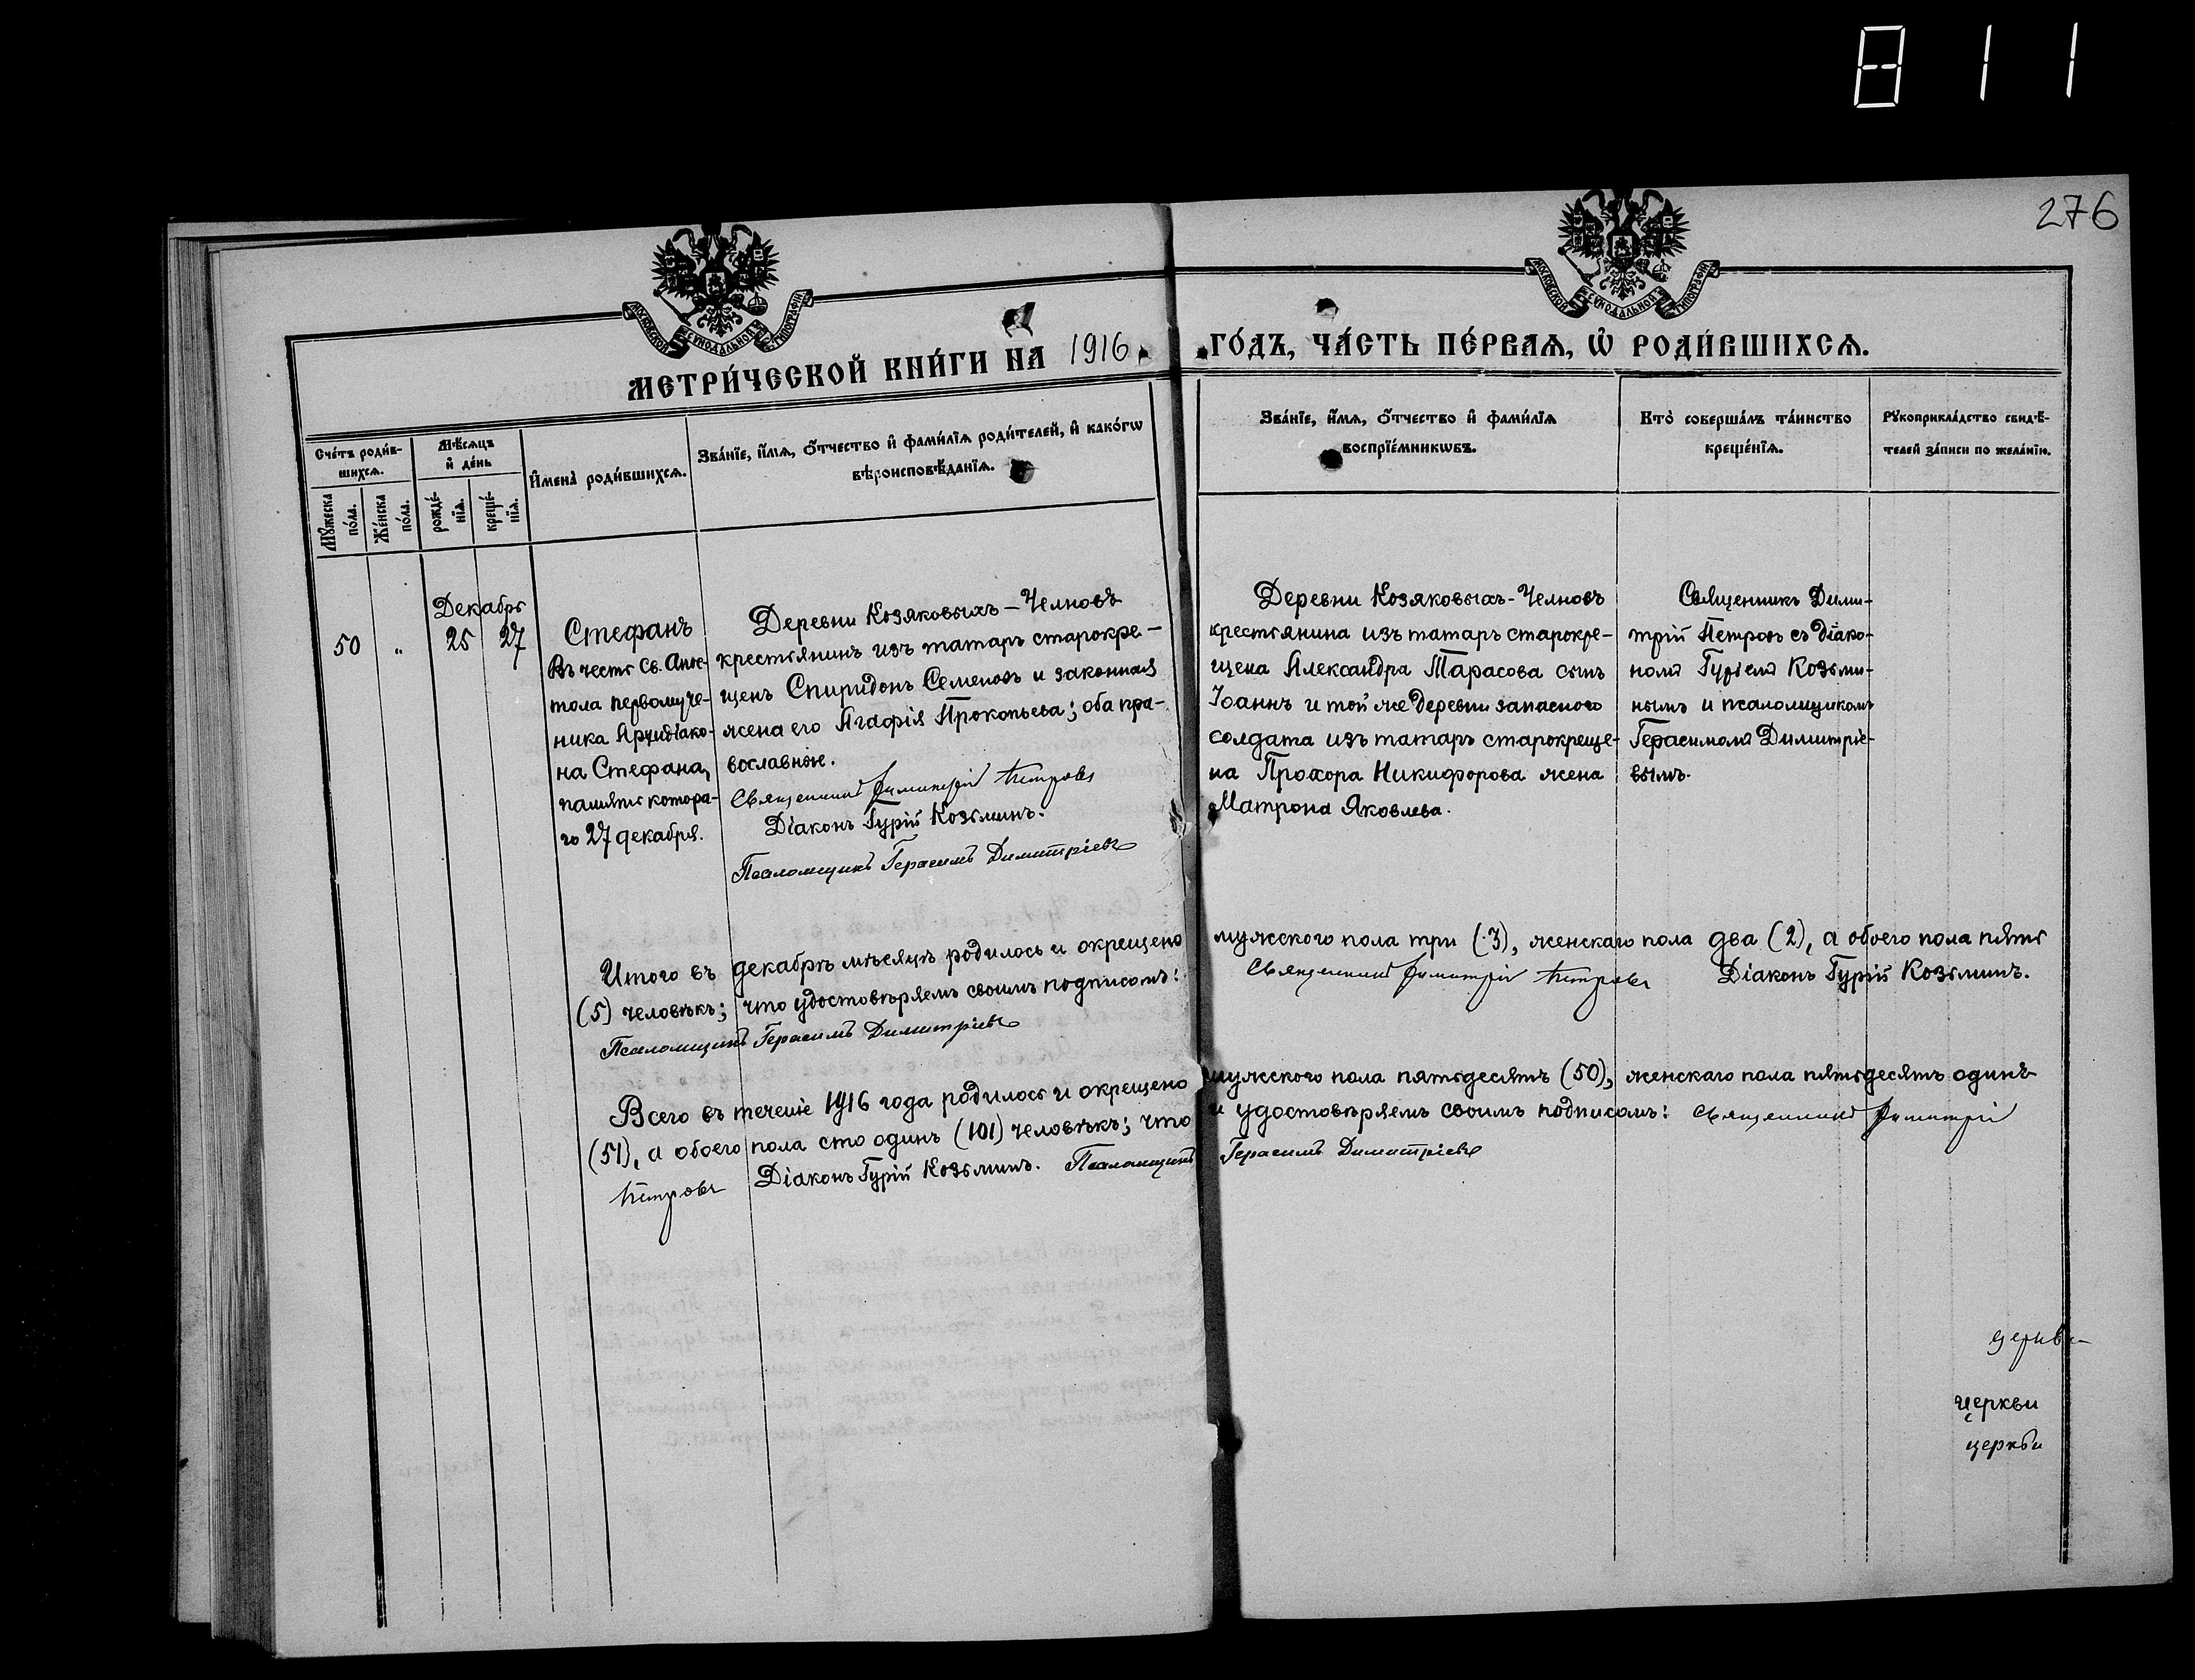 811
276
МОСКОВСКОЙ СѴНОДАЛЬНОЙ ТИПОГРАФІИ
МОСКОВСКОЙ СѴНОДАЛЬНОЙ ТИПОГРАФІИ
МЕТРИ́ЧЕСКОЙ КНИ́ГИ НА 1916 ГО́ДЪ, ЧА́СТЬ ПЕ́РВАѦ, Ѡ҆ РОДИ́ВШИХСѦ.
Сче́тъ роди́в-
шихсѧ.
Мꙋ́жеска
по́ла.
Же́нска
по́ла.
Мѣ́сѧцъ
и҆ де́нь
рожде́-
нїѧ.
креще́-
нїѧ.
И҆мена̀ роди́вшихсѧ.
Зва́нїе, и҆́мѧ, ѻ҆́тчество и҆ фами́лїѧ роди́телей, и҆ како́гѡ
вѣроисповѣ́данїѧ.
Зва́нїе, и҆́мѧ, ѻ҆́тчество и҆ фами́лїѧ
воспрїе́мникѡвъ.
Кто̀ соверша́лъ та́инство
креще́нїѧ.
Рꙋкоприкла́дство свидѣ́-
телей за́писи по жела́нїю.
50
"
Декабрь
25 27
Стефанъ
Въ честь Св. Апос-
тола первомуче-
ника Архидіако-
на Стефана,
память котора-
го 27 декабря.
Деревни Козяковыхъ-Челновъ
крестьянинъ изъ татаръ старокре-
щенъ Спиридонъ Семеновъ и законная
жена его Агафія Прокопьева; оба пра-
вославные.
Священникъ Димитрій Петровъ
Діаконъ Гурій Козьминъ.
Псаломщикъ Герасимъ Димитріевъ
Деревни Козяковыхъ-Челновъ
крестьянина изъ татаръ старокре-
щена Александра Тарасова сынъ
Іоаннъ и той же деревни запаснаго
солдата изъ татаръ старокреще-
на Прохора Никифорова жена
Матрона Яковлева.
Священникъ Дими-
трій Петровъ съ діако-
номъ Гуріемъ Козьми-
нымъ и псаломщикомъ
Герасимомъ Димитріе-
вымъ.
Итого въ декабрѣ мѣсяцѣ родилось и окрещено мужского пола три (3), женскаго пола два (2), а обоего пола пять
(5) человѣкъ; что удостовѣряемъ своимъ подписомъ: Священникъ Димитрій Петровъ Діаконъ Гурій Козьминъ.
Псаломщикъ Герасимъ Димитріевъ
Всего въ теченіе 1916 года родилось и окрещено мужского пола пятьдесятъ (50), женскаго пола пятьдесятъ одинъ
(51), а обоего пола сто одинъ (101) человѣкъ; что и удостовѣряемъ своимъ подписомъ: Священникъ Димитрій
Петровъ Діаконъ Гурій Козьминъ. Псаломщикъ Герасимъ Димитріевъ
церкви
церкви